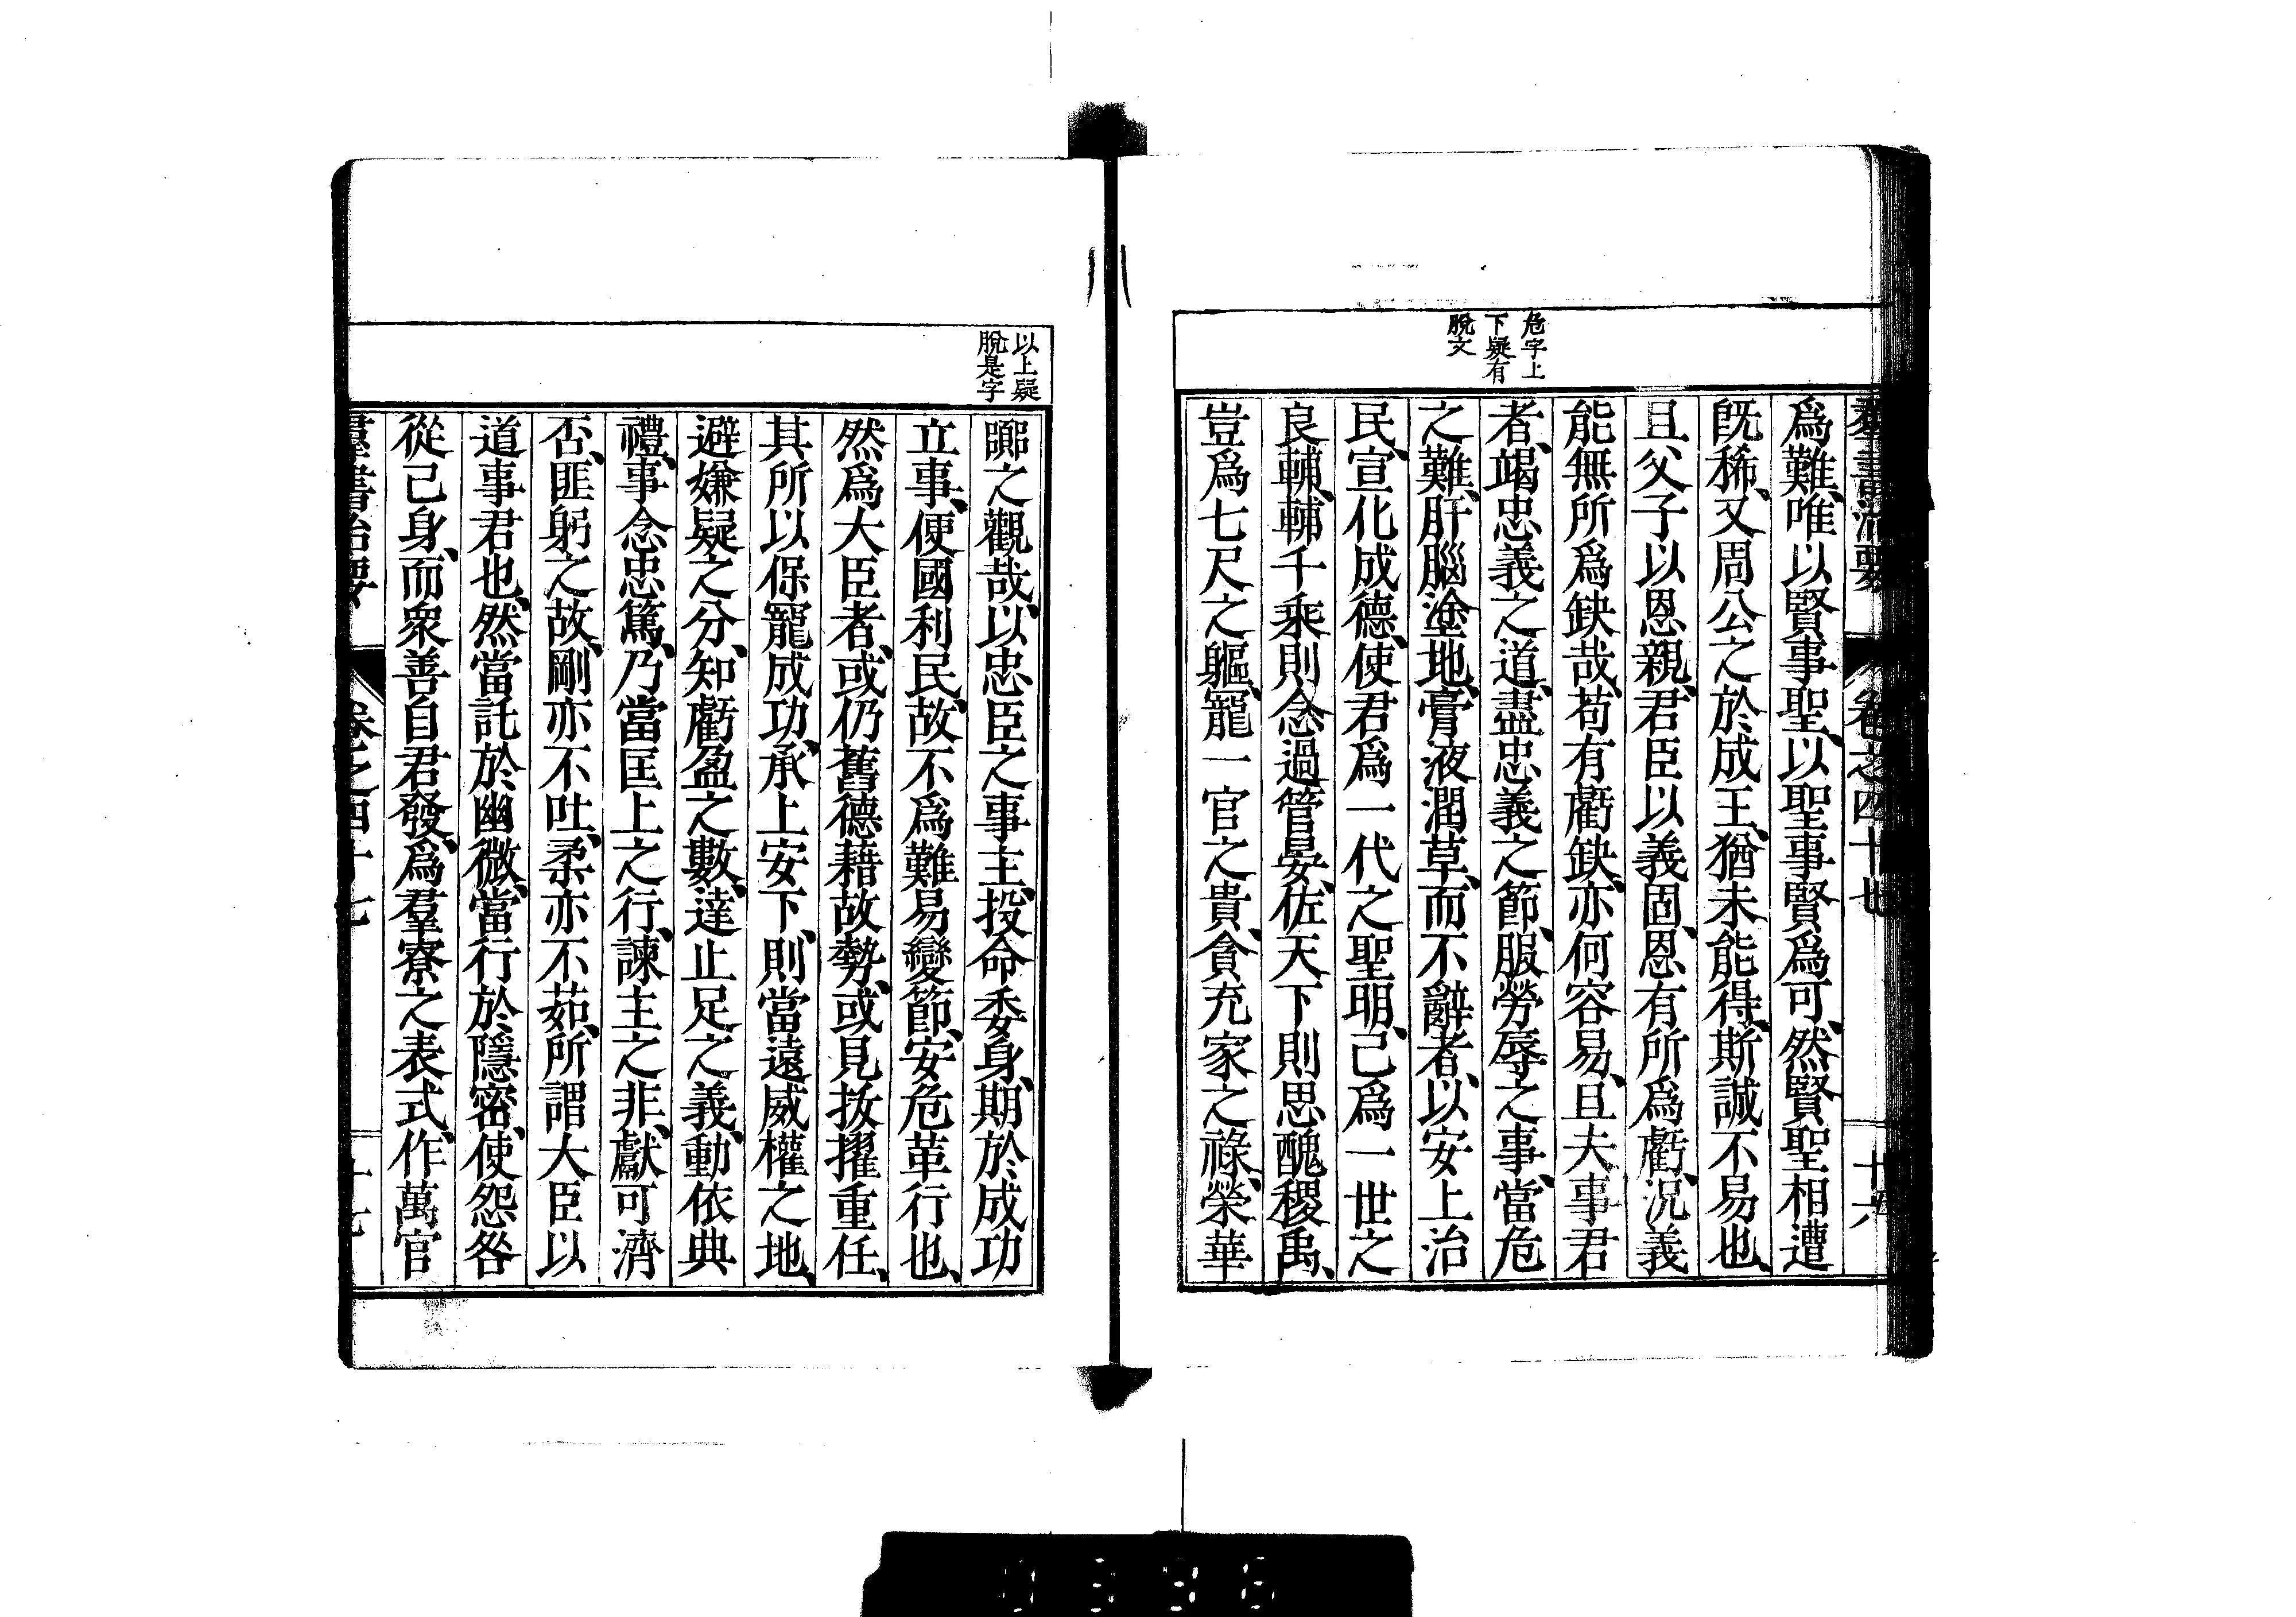 羣書治要 卷之四十七 十六
危字上
下疑有
脫文
爲難、唯以賢事聖、以聖事賢爲可、然賢聖相遭
旣稀、又周公之於成王、猶未能得、斯誠不易也、
且父子以恩親、君臣以義固、恩有所爲虧、況義
能無所爲缺哉、苟有虧缺、亦何容易、且夫事君
者、竭忠義之道、盡忠義之節、服勞辱之事、當危
之難、肝腦塗地、膏液潤草、而不辭者、以安上治
民、宣化成德、使君爲一代之聖明、己爲一世之
良輔、輔千乘則念過管晏、佐天下則思醜稷禹、
豈爲七尺之軀、寵一官之貴、貪充家之祿、榮華
以上疑
脫是字
囂之觀哉、以忠臣之事主、投命委身、期於成功
立事、便國利民、故不爲難易變節、安危革行也、
然爲大臣者、或仍舊德藉故勢、或見拔擢重任、
其所以保寵成功、承上安下、則當遠威權之地、
避嫌疑之分、知虧盈之數、達止足之義、動依典
禮、事念忠篤、乃當匡上之行、諫主之非、獻可濟
否、匪躬之故、剛亦不吐、柔亦不茹、所謂大臣以
道事君也、然當託於幽微、當行於隱密、使怨咎
從己身、而衆善自君發、爲羣寮之表式、作萬官
羣書治要 卷之四十七 十七